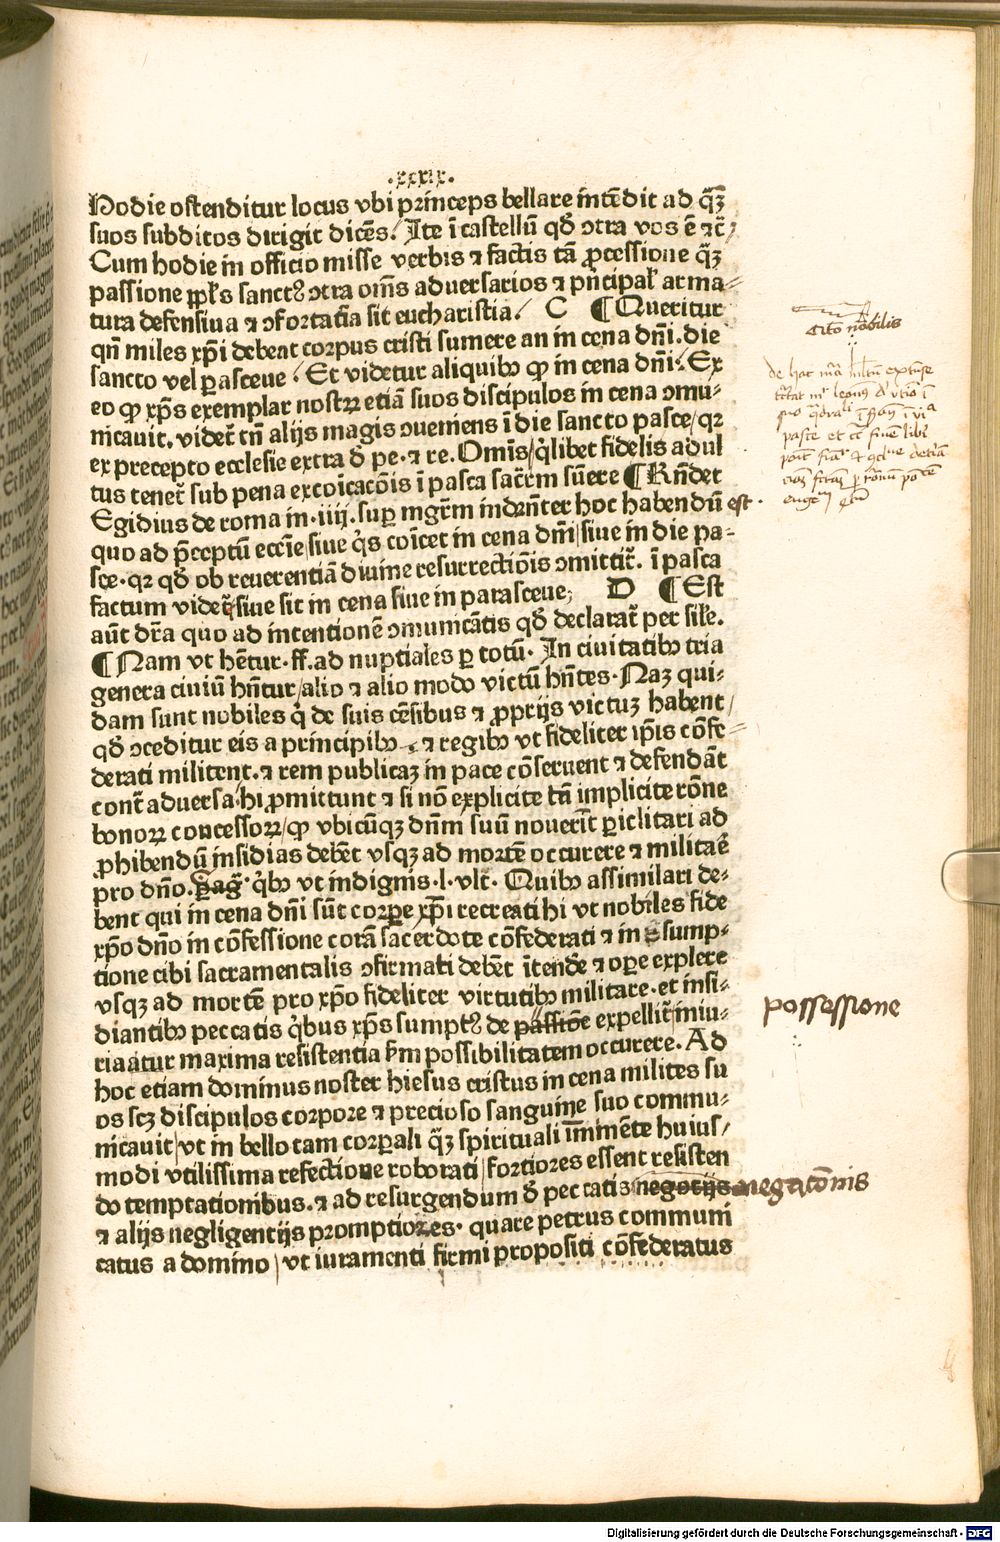 .xxxix.
Hodie ostenditur locus vbi princeps bellare intēdit ad q̄ꝫ
suos subditos dirigit dicēs. Ite ī castellū qđ ↄtra vos ē ⁊c̄
Cum hodie in officio misse verbis ⁊ factis tā ꝓcessione q̄ꝫ
passione ppl's sanctꝰ ↄtra om̄s aduersarios ⁊ pn̄cipal' arma-
tura defensiua ⁊ ↄfortatīa sit eucharistia. C ¶ Queritur
qn̄ miles xp̄i debeat corpus cristi sumere an in cena dn̄i. die
sancto vel ꝑasceue. Et videtur aliquibꝰ ꝙ in cena dn̄i. Ex
eo ꝙ xp̄s exemplar nostrꝝ etiā suos discipulos in cena ↄmu-
nicauit. videt̄ tn̄ alijs magis ↄueniens ī die sancto pasce/qꝛ
ex precepto ecclesie extra đ pe. ⁊ re. Om̄is/q̇libet fidelis adul
tus tenet̄ sub pena excōicacōis ī pasca sac̄em sūere ¶ Rn̄det
Egidius de roma in .iiij. suꝑ mgr̄m indēn̄ter hoc habendū est.
quo ad p̄ceptū ecc̄ie/siue q̇s cōicet in cena dn̄i/siue in die pa-
sce. qꝛ qđ ob reuerentiā diuine resurrectiōis ↄmittit̄. ī pasca
factum videt̄/siue sit in cena siue in parasceue; D ¶ Est
aūt dr̄a quo ad intentionē ↄmunicātis qđ declarat̄ per sil'e.
¶ Nam vt hēntur .ff. ad nuptiales ꝑ totū. In ciuitatibꝰ tria
genera ciuiū hn̄tur/alio ⁊ alio modo victū hn̄tes. Naꝫ qui-
dam sunt nobiles q̇ de suis cēsibus ⁊ ꝓprijs victuꝫ habent/
qđ ↄceditur eis a principibꝰ ⁊ regibꝰ vt fideliter ip̄is cōfe-
derati militent. ⁊ rem publicaꝫ in pace cōseruent ⁊ defendāt
cont̄ aduersa. hi ꝓmittunt ⁊ si nō explicite tn̄ implicite rōne
bonoꝝ concessoꝝ/ꝙ vbicūqꝫ dn̄m suū nouerīt ꝑiclitari ad
ꝓhibendū insidias debēt vsqꝫ ad mortē occurere ⁊ militaē
pro dn̄o. q̇bꝰ vt indignis .l. vlt̄. Quibꝰ assimilari de-
bent qui in cena dn̄i sūt corꝑe xp̄i recreati hi vt nobiles fide
xp̄o dn̄o in cōfessione corā sacerdote cōfederati ⁊ in ssump-
tione cibi sacramentalis ↄfirmati debēt ītende ⁊ oꝑe explere
vsqꝫ ad mortē pro xp̄o fideliter virtutibꝰ militare. et insi-
diantibꝰ peccatis q̇bus xp̄s sumptꝰ de passiōe expellit̄/iniu-
riaatur maxima resistentia s̄m possibilitatem occurere. Ad
hoc etiam dominus noster hiesus cristus in cena milites su
os scꝫ discipulos corpore ⁊ precioso sanguine suo commu-
nicauit/vt in bello tam corꝑali q̄ꝫ spirituali īmmēte huius-
modi vtilissima refectione roborati/fortiores essent resisten
do temptationibus. ⁊ ad resurgendum đ peccatis negotijs
⁊ alijs negligentijs promptiores. quare petrus communi
catus a domino/vt iuramenti firmi propositi cōfederatus
possessione
negatōnis
Digitalisierung gefördert durch die Deutsche Forschungsgemeinschaft - DFG